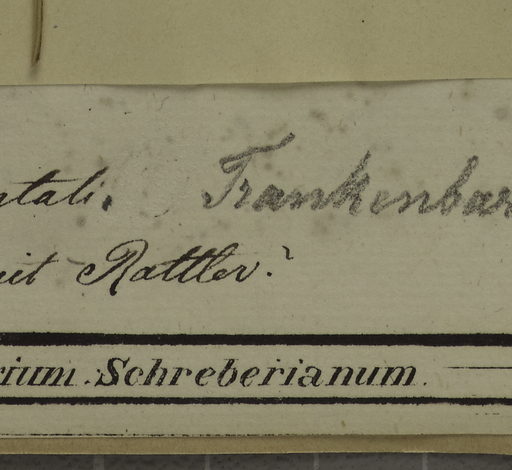 ntali. Frankenbar
it Rattler?
rium. Schreberianum.